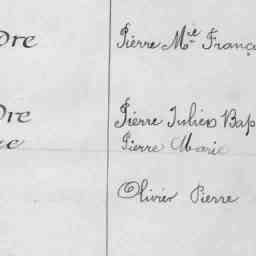 dre Pierre Mie Franç
dre Pierre Julien Bap
re Pierre Marie
Olivier Pierre